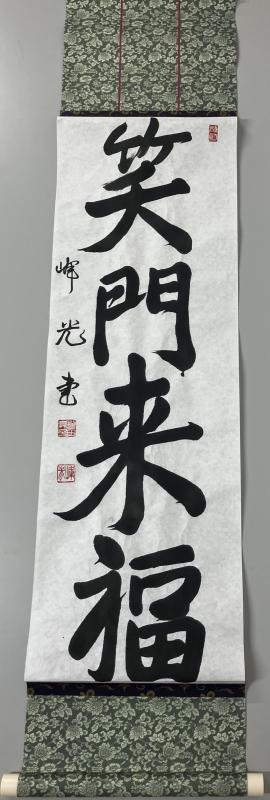 笑門来福
峰光書